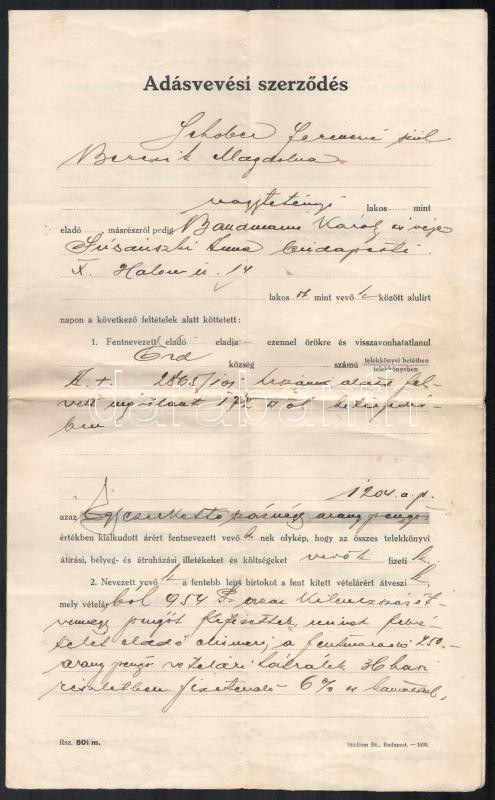 Adásvevési szerződés
Schober Ferencné szül
Bercsik Magdolna
nagytétényi lakos mint
eladó másrészről pedig Bandmann Károly és neje
Anna budapesti
X. Halom u. 14
lakos ok mint vevő k között alulírt
napon a következő feltételek alatt köttetett:
1. Fentnevezett eladó eladja ezennel örökre és visszavonhatatlanul
Érd község számú telekkönyvi betétben
telekkönyvben
2865/ hrszám alatt fel-
vett 172 öl
ben
1204 a.p.
azaz Egyezerkettőszáznégy arany pengő
értékben kialkudott árért fentnevezett vevő k nek olykép, hogy az összes telekkönyvi
átírási, bélyeg- és átruházási illetékeket és költségeket vevők fizeti k.
2. Nevezett vevő k a fentebb leírt birtokot a fent kitett vételárért átveszi k
mely vételár ból 954 P. azaz Kilencszázöt-
vennégy pengőt kifizettek, minek felvé-
telét eladó elismeri, a fentmaradó 250.-
arany pengő vételári hátralék 36 havi
részletben fizetendő 6% os kamattal,
Rsz. 801/m.
Stádium Rt., Budapest. — 1930.
darabanth.com